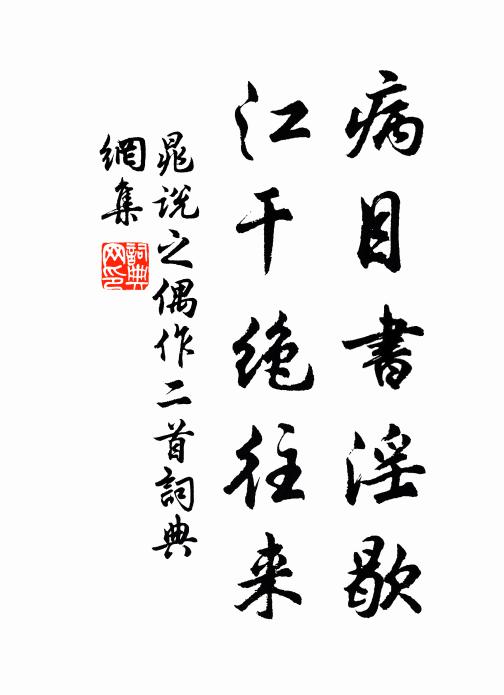 病目書淫歇
江干絶往来
晁説之偶作二首詞典
網集
詞典
网印